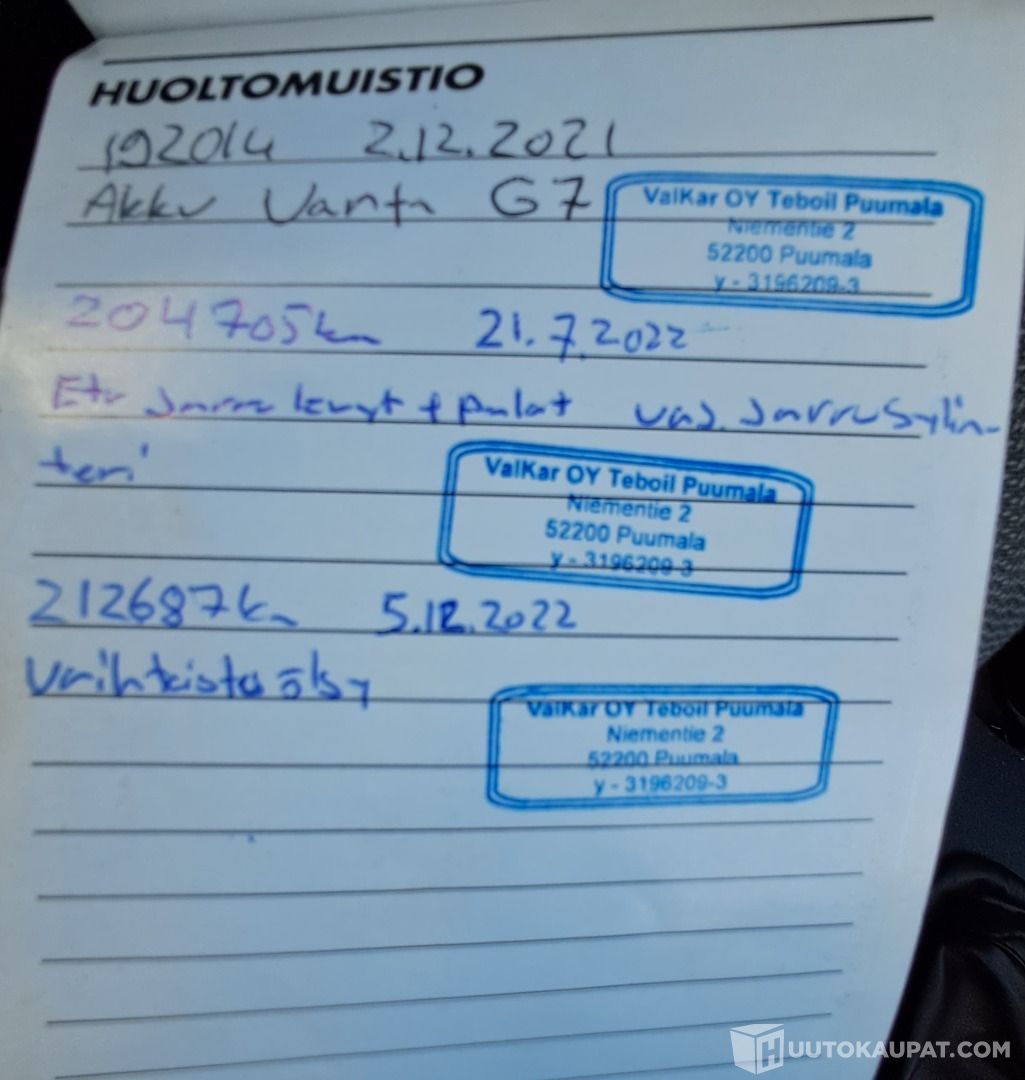 HUOLTOMUISTIO
192014 2.12.2021
Akku Varta G7
ValKar OY Teboil Puumala
Niementie 2
52200 Puumala
y - 3196209-3
204705km 21.7.2022
Etu Jarru levyt + palat vas. Jarrusylin-
teri
ValKar OY Teboil Puumala
Niementie 2
52200 Puumala
y - 3196209-3
212687km 5.12.2022
Vaihteisto öljy
ValKar OY Teboil Puumala
Niementie 2
52200 Puumala
y - 3196209-3
HUUTOKAUPAT.COM